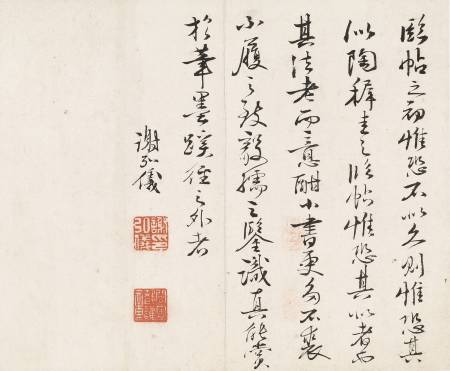 臨帖之初惟恐不似久則惟恐其
似陶穉圭之臨帖惟恐其似者也
其法老而意酣小書更多不
不履之致毅孺之鑒識真能賞
於筆墨蹊徑之外者
謝弘儀